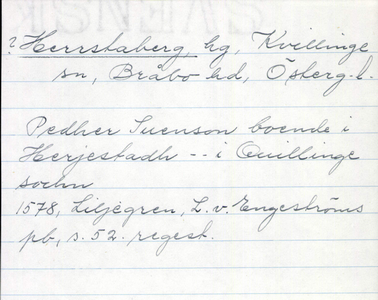 ? Herrstaberg, hg, Kvillinge
sn, Bråbo hd, Österg.l.
Pedher Suenson boende i
Herjestadh -- i Quillinge
sochn
1578, Liljegren, L. v. Engeströms
pb, s. 52. regest.